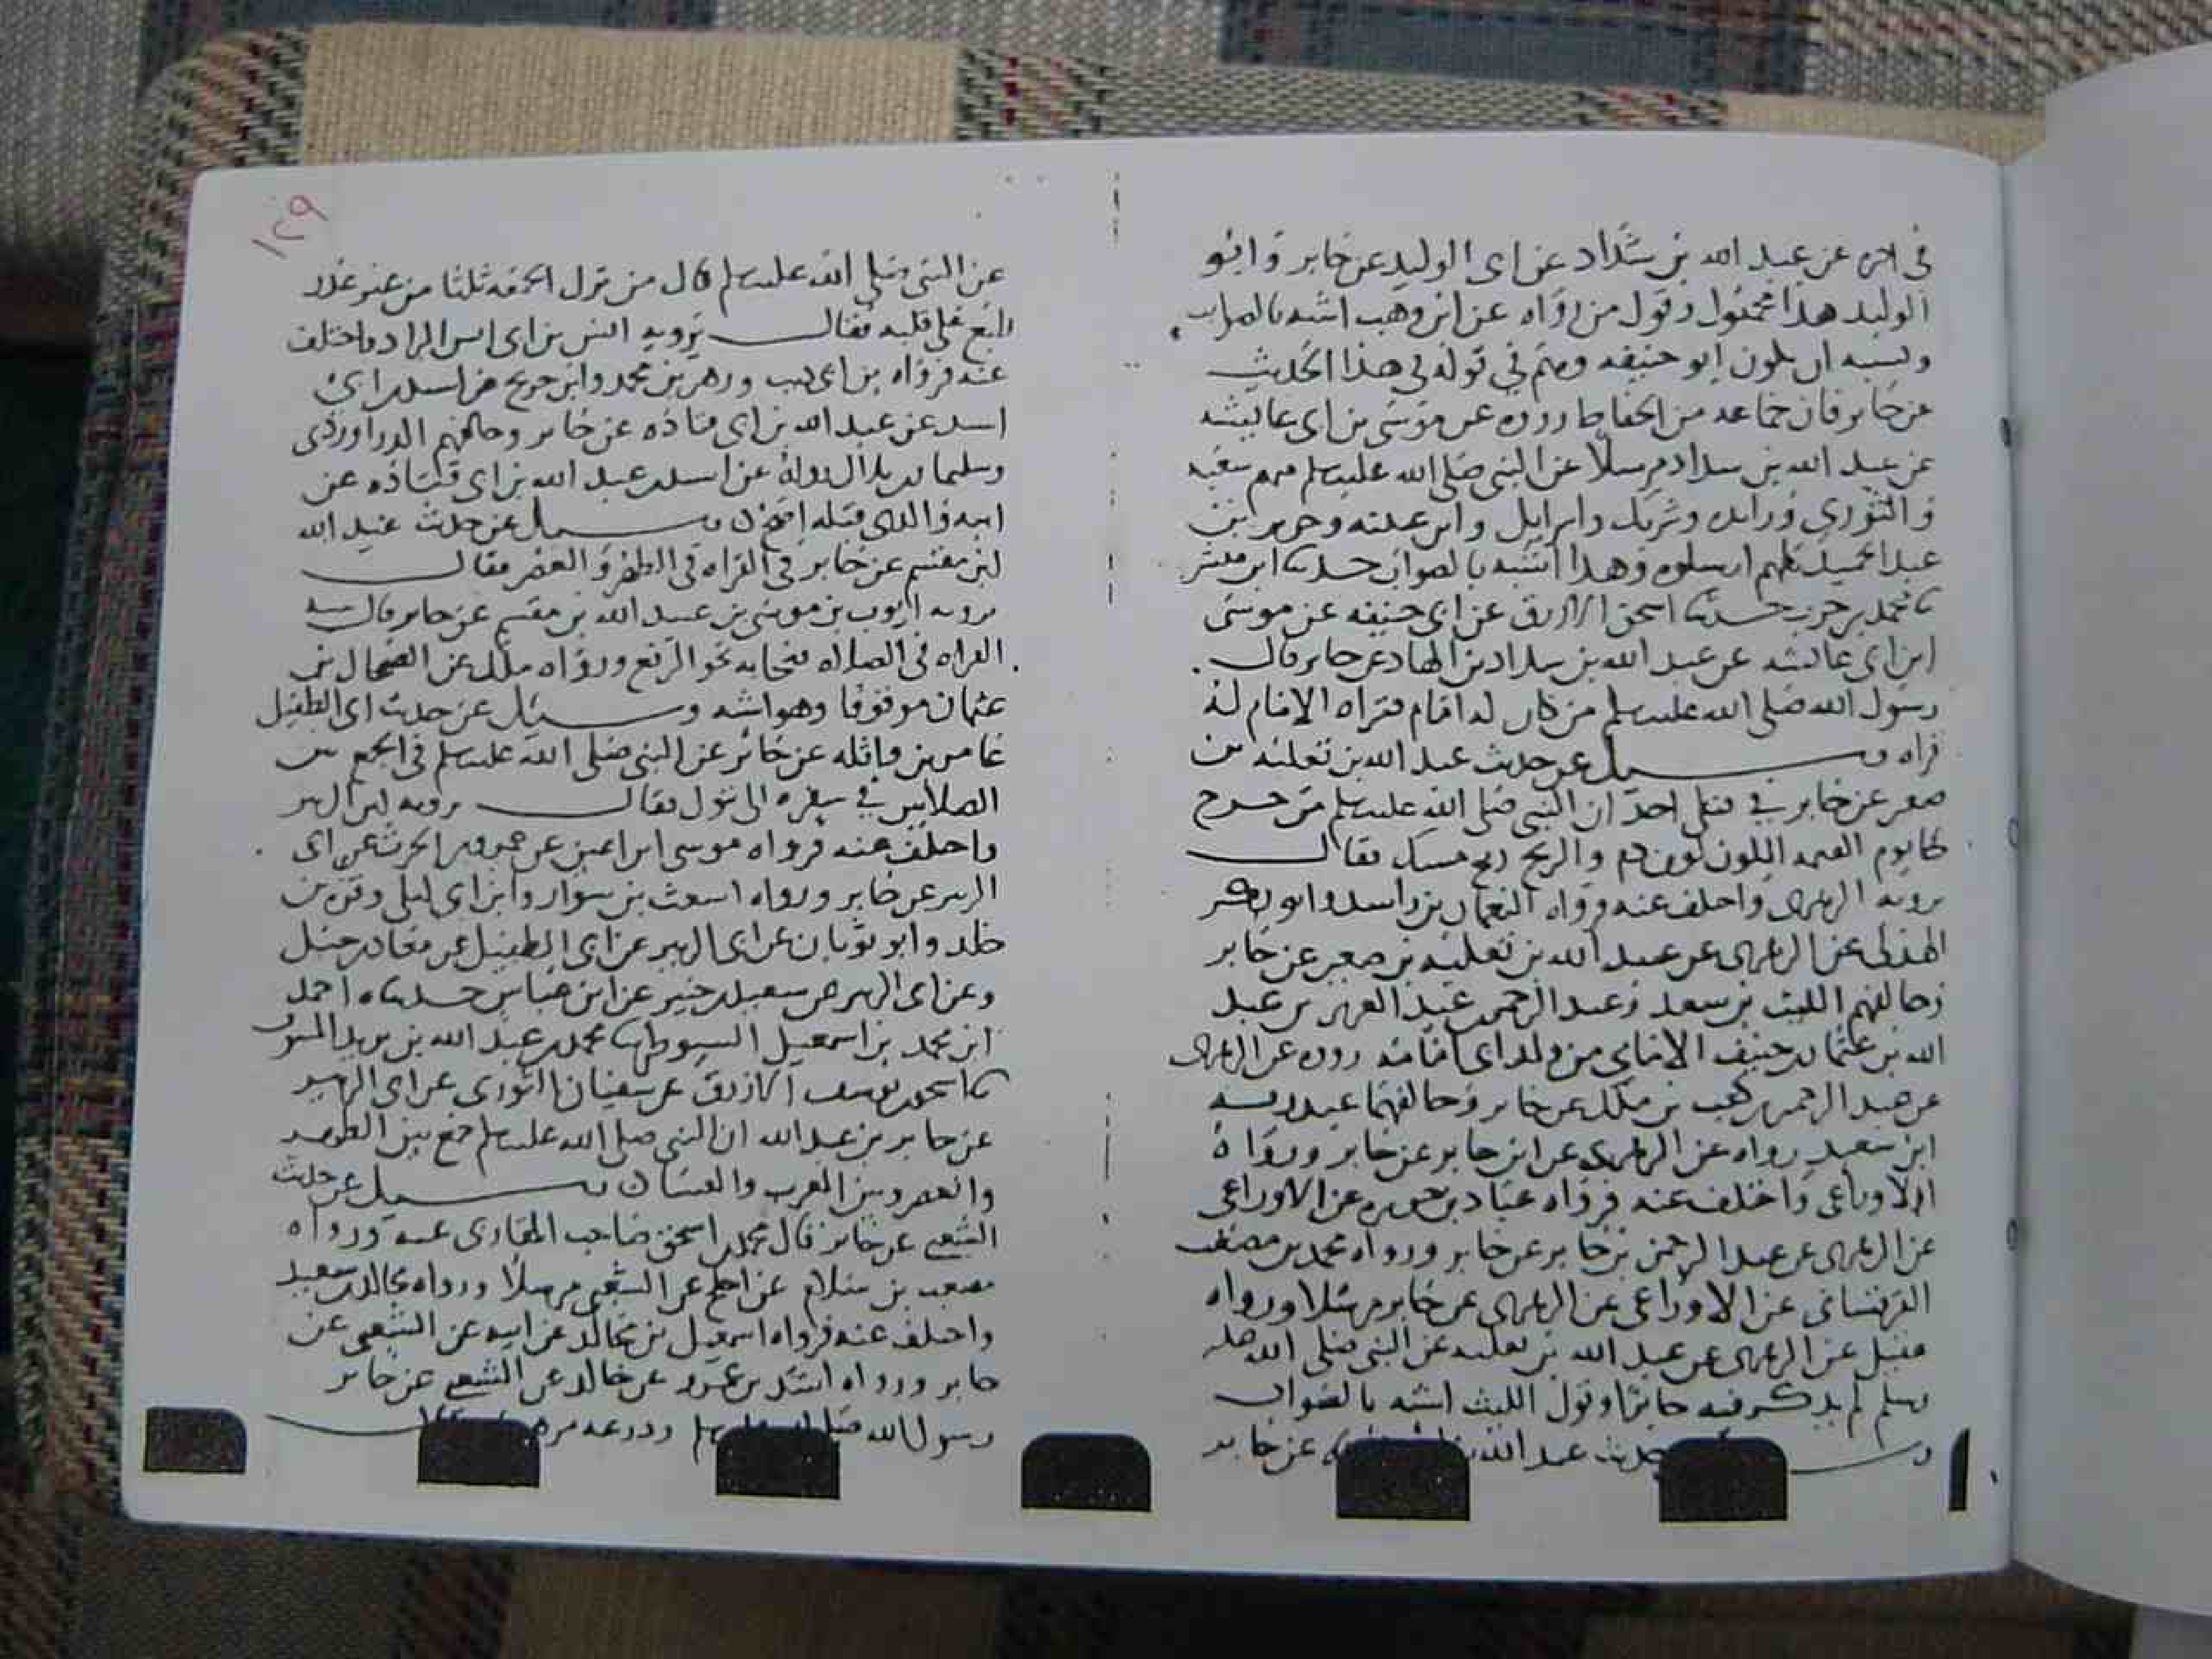 في اخره عن عبد الله بن شداد عن ابي الوليد عن جابر وابو
الوليد هذا مجهول وقول من رواه عن ابن وهب اشبه بالصواب
ويشبه ان يكون ابو حنيفه وهم في قوله في هذا الحديث
عن جابر فان جماعه من الحفاظ رووه عن موسى بن ابي عايشه
عن عبد الله بن شداد مرسلا عن النبي صلى الله عليه وسلم منهم شعبه
والثوري وزايده وشريك واسرايل وابن عيينه وجرير بن
عبد الحميد كلهم ارسلوه وهذا اشبه بالصواب حدثنا ابن مبشر
نا محمد بن حرب حدثنا اسحق الازرق عن ابي حنيفه عن موسى
ابن ابي عايشه عن عبد الله بن شداد بن الهاد عن جابر قال
رسول الله صلى الله عليه وسلم من كان له امام فقراه الامام له
قراه وسيل عن حديث عبد الله بن ثعلبه بن
صعير عن جابر في قتلى احد ان النبي صلى الله عليه وسلم من جرح
جا يوم القيمه اللون لون دم والريح ريح مسك فقال
يرويه الزهري واختلف عنه فرواه النعمان بن راشد وابو بكر
الهذلي عن الزهري عن عبد الله بن ثعلبه بن صعير عن جابر
وخالفهم الليث بن سعد وعبد الرحمن عبد العزيز بن عبد
الله بن عثمان بن حنيف الامامي من ولد ابي امامه رووه عن الزهري
عن عبد الرحمن بن كعب بن ملك عن جابر وخالفهما عبد ربه
ابن سعيد رواه عن الزهري عن ابن جابر عن جابر ورواه
الاوزاعي واختلف عنه فرواه عباد بن عن الاوزاعي
عن الزهري عن عبد الرحمن بن جابر عن جابر ورواه محمد بن مصعب
القرقساني عن الاوزاعي عن الزهري عن جابر مرسلا ورواه
عقيل عن الزهري عن عبد الله بن ثعلبه عن النبي صلى الله عليه
وسلم لم يذكر فيه جابرا وقول الليث اشبه بالصواب
وسيل حديث عبد الله بن عن جابر
١٢٩
عن النبي صلى الله عليه وسلم قال من ترك الجمعه ثلثا من غير عذر
طبع على قلبه فقال يرويه اسيد بن ابي اسيد البراد واختلف
عنه فرواه بن ابي ذيب وزهير بن محمد وابن جريج عن اسيد بن ابي
اسيد عن عبد الله بن ابي قتاده عن جابر وخالفهم الدراوردي
وسليمان بن بلال روياه عن اسيد عن عبد الله بن ابي قتاده عن
ابيه والذي قبله اصح وسيل عن حديث عبيد الله
ابن مقسم عن جابر في القراه في الظهر والعصر فقال
يرويه ايوب بن موسى بن عبيد الله بن مقسم عن جابر قال
القراه في الصلاه ورواه ملك عن الضحاك بن
عثمان موقوفا وهو اشبه وسيل عن حديث ابي الطفيل
عامر بن واثله عن جابر عن النبي صلى الله عليه وسلم في الجمع بين
الصلاتين في سفره الى تبوك فقال يرويه ابو الزبير
واختلف عنه فرواه موسى ابن اعين عن عمرو بن الحرث عن ابي
الزبير عن جابر ورواه اشعث بن سوار وابن ابي ليلى وقره بن
خلد وابو ثوبان عن ابي الزبير عن ابي الطفيل عن معاذ بن جبل
وعن ابي الزبير عن سعيد بن جبير عن ابن عباس حدثناه احمد
ابن محمد بن اسمعيل السيوطي نا محمد بن عبد الله بن يزيد
نا اسحق بن يوسف الازرق عن سفيان الثوري عن ابي الزبير
عن جابر بن عبد الله ان النبي صلى الله عليه وسلم جمع بين الظهر
والعصر وبين المغرب والعشا وسيل عن حديث
الشعبي عن جابر قال محمد بن اسحق صاحب المغازي عنه ورواه
مصعب بن سلام عن اجلح عن الشعبي مرسلا ورواه مجالد بن سعيد
واختلف عنه فرواه اسمعيل بن مجالد عن ابيه عن الشعبي عن
جابر ورواه اسد بن عمرو عن مجالد عن الشعبي عن جابر
رسول الله ودرعه